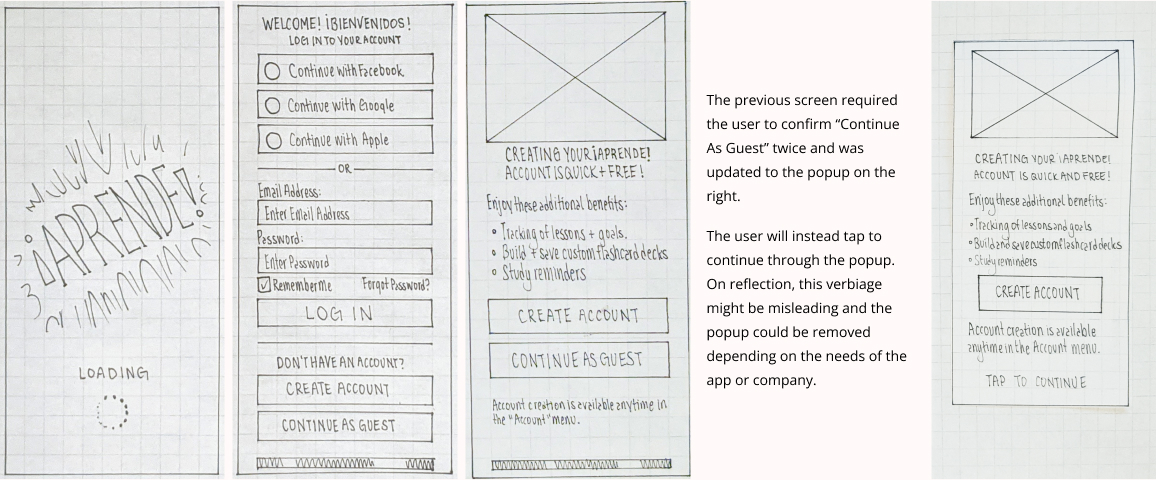 ¡APRENDE!
LOADING
WELCOME! ¡BIENVENIDOS!
LOG IN TO YOUR ACCOUNT
Continue with Facebook
Continue with Google
Continue with Apple
OR
Email Address:
Enter Email Address
Password:
Enter Password
Remember me
Forgot Password?
LOG IN
DON'T HAVE AN ACCOUNT?
CREATE ACCOUNT
CONTINUE AS GUEST
CREATING YOUR ¡APRENDE!
ACCOUNT IS QUICK + FREE!
Enjoy these additional benefits:
• Tracking of lessons + goals,
• Build + save custom flashcard decks
• Study reminders
CREATE ACCOUNT
CONTINUE AS GUEST
Account creation is available anytime in
the "Account" menu.
The previous screen required
the user to confirm “Continue
As Guest” twice and was
updated to the popup on the
right.
The user will instead tap to
continue through the popup.
On reflection, this verbiage
might be misleading and the
popup could be removed
depending on the needs of the
app or company.
CREATING YOUR ¡APRENDE!
ACCOUNT IS QUICK AND FREE!
Enjoy these additional benefits:
• Tracking of lessons and goals
• Build and save custom flashcard decks
• Study reminders
CREATE ACCOUNT
Account creation is available
anytime in the Account menu.
TAP TO CONTINUE